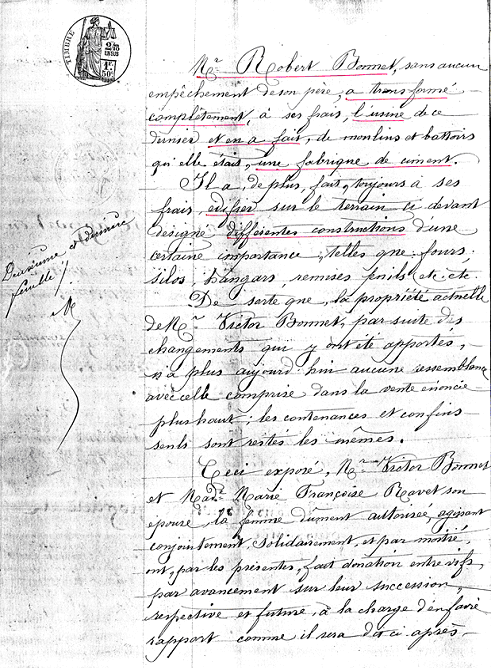 TIMBRE
2/10 EN SUS
1F. 50c
Mr Robert Bonnet, sans aucun
empêchement de son père, a transformé
complètement, à ses frais, l'usine de ce
dernier et en a fait, de moulins et battoirs
qu'elle était, une fabrique de ciment.
Il a, de plus, fait, toujours à ses
frais, édifier sur le terrain ci devant
désigné différentes constructions d'une
certaine importance, telles que fours,
silos, hangars, remises fenils etc. etc
De sorte que, la propriété actuelle
de Mr Victor Bonnet, par suite des
changements qui y ont été apportés,
n'a plus aujourd'hui aucune ressemblance
avec celle comprise dans la vente énoncée
plus haut; les contenances et confins
seuls sont restés les mêmes.
Ceci exposé, Mr Victor Bonnet
et Made Marie Françoise Ravet son
épouse, la femme dûment autorisée, agissant
conjointement, solidairement, et par moitié,
ont, par les présentes, fait donation entre vifs,
par avancement sur leur succession,
respective et future, à la charge d'en faire
rapport comme il sera dit ci après
Deuxième et dernière
feuille/.